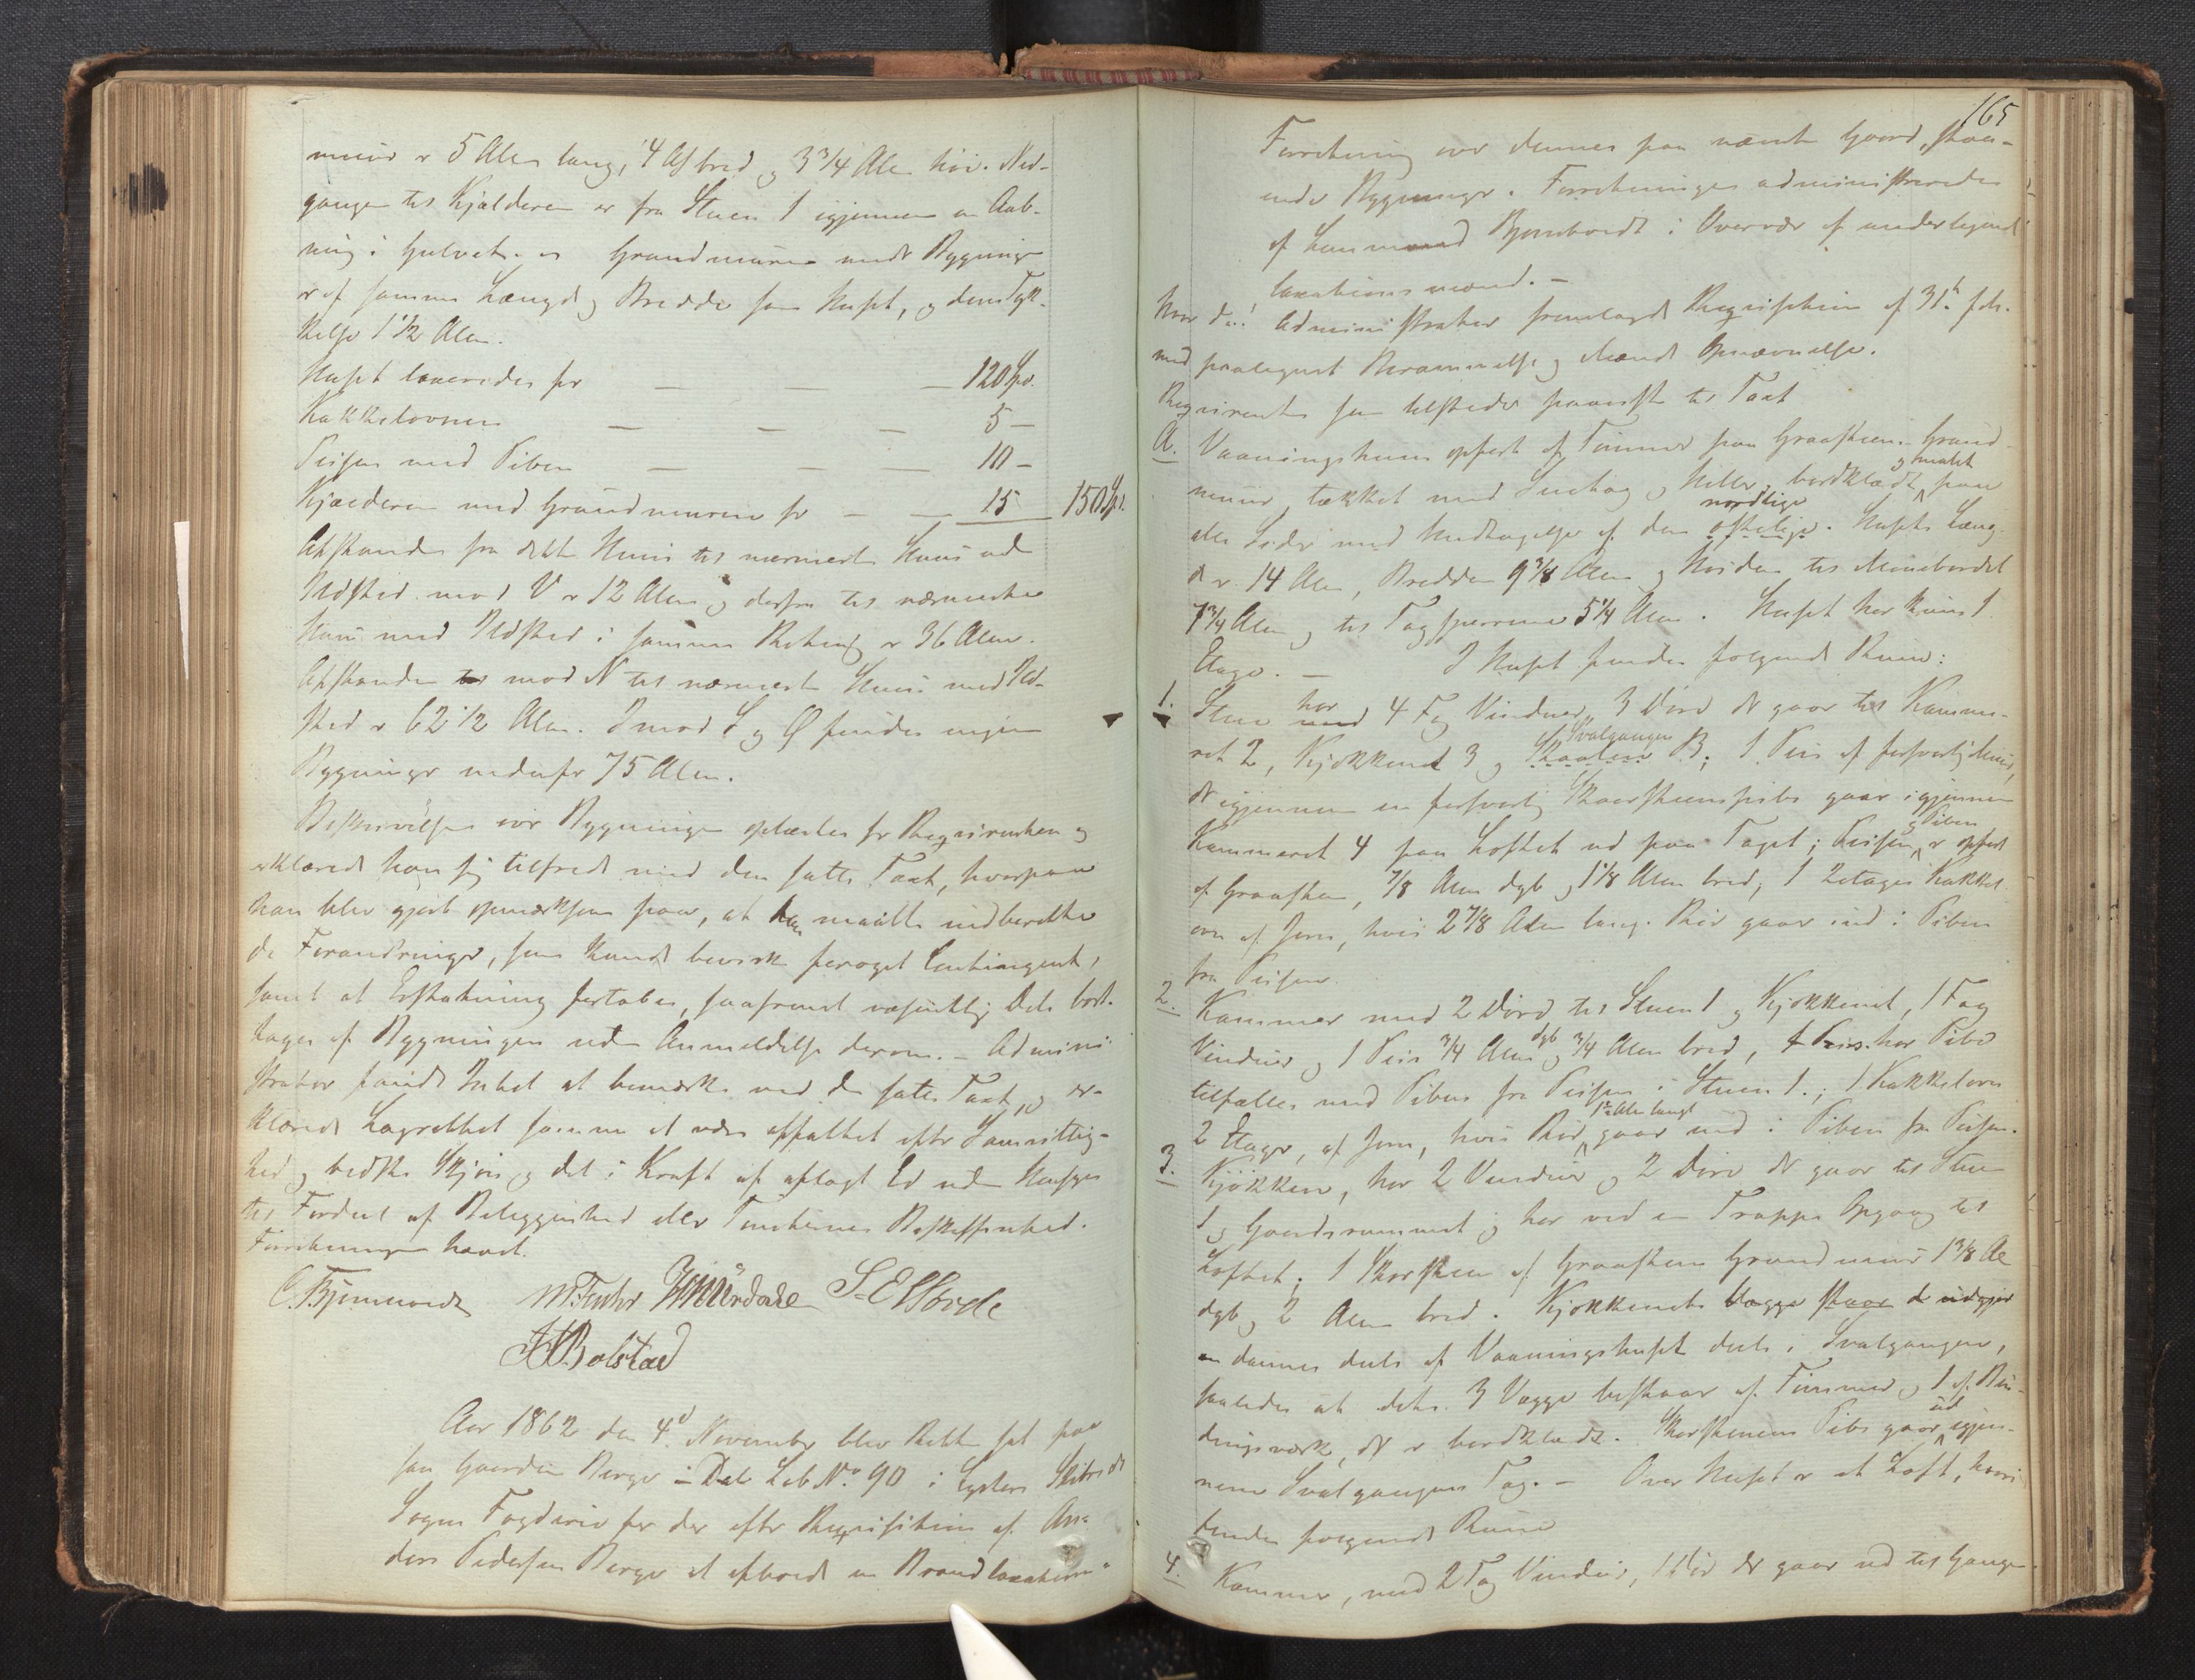 muur er 5 Alen lang, 4 Al bred og 3 3/4 Alen høi. Ned-
gangen til Kjælderen er fra Stuen 1 igjennem en Aab-
ning i Gulvet. Grundmuren under Bygningen
er af samme Længde og Bredde som Huset, og dens Tyk-
kelse 1 1/2 Alen.
Huset taxeredes for — — — 120 Spd.
Kakkelovnen — — — 5 —
Peisen med Piben — — — 10 —
Kjælderen med Grundmuren for — — 15 150 Spd.
Afstanden fra dette Huus til nærmeste Huus uden
Ildsted mod V er 12 Alen og derfra til nærmeste
Huus med Ildsted i samme Retning er 36 Alen.
Afstanden mod N til nærmeste Huus med Ild-
sted er 62 1/2 Alen. Imod S og Ø findes ingen
Bygninger indenfor 75 Alen.
Beskrivelsen over Bygningen oplæstes for Reqvirenten og
erklærede han sig tilfreds med den satte Taxt, hvorpaa
han blev gjort opmærksom paa, at han maatte indberette
de Forandringer, som kunde bevirke forøget Contingent,
samt at Erstatning fortabes, saafremt væsentlig Dele bort-
tages af Bygningen uden Anmeldelse derom. – Admini-
strator fandt Intet at bemærke ved den satte Taxt, og er-
klærede Lagrettet samme at være affattet efter Samvittig-
hed og bedste Skjøn og det i Kraft af aflagt Ed uden Hensyn
til Fordeel af Beliggenhed eller Tomternes Beskaffenhed.
Forretningen hævet.
C. Bjerneboedt S. E. Hovde
H. Bolstad
Aar 1862 den 4d November blev Retten sat paa
paa Gaarden Berge i Dale Lab No. 90 i Lysters Skibrede
Sogns Fogderie for der efter Reqvisition af An-
ders Pedersen Berge at afholde en Brandtaxations-
165
Forretning over dennes paa nævnte Gaard staa-
ende Bygninger. Forretningen administreredes
af Lensmand Bjerneboedt i Overvær af undertegnede
taxationsmænd. –
Hvor da! Administrator fremlagde Reqvisition af 31te f. M.
med paategnet Berammelse og Mænds Opnævnelse.
Reqvirenten som tilstede paaviste til Taxt
A. Vaaningshuus opført af Tømmer paa Graasteens Grund-
og malet
muur, tækket med Steentag og Heller, bordklædt paa
nordlige
alle Sider med Undtagelse af den østlige. Husets Læng-
de er 14 Alen, Bredden 9 3/8 Alen og Høiden til Mønebordet
7 3/4 Alen og til Tagsperrerne 5 1/4 Alen. Huset har kun 1
Etage. – I Huset findes følgende Rum:
har
1. Stue med 4 Fag Vinduer, 3 Døre der gaar til Kamme-
Svalgangen
ret 2, Kjøkkenet 3 og Skaalen B; 1 Peis af forsvarlig Muur,
der igjennem en forsvarlig Skorsteenspibe gaar igjennem
og Piben
Kammeret 4 paa Loftet ud paa Taget; Peisen er opført
af Graasteen, 7/8 Alen dyb og 1 1/8 Alen bred; 1 2 etages Kakkel-
ovn af Jern, hvis 2 7/8 Alen lang Rør gaar ind i Piben
fra Peisen.
2. Kammer med 2 Døre til Stuen 1 og Kjøkkenet, 1 Fag
dyb
Vinduer og 1 Peis 3/4 Alen og 3/4 Alen bred, Peis har Pibe
tilfælles med Piben fra Peisen i Stuen 1.; 1 Kakkelovn
Alen langt
2 Etager, af Jern, hvis Rør gaar ind i Piben fra Peisen.
3. Kjøkken, har 2 Vinduer og 2 Døre der gaar til Stue
1 og Gaardsrummet og har ved en Trappe Opgang til
Loftet; 1 Skorsteen af Graasteens Grundmuur 1 3/8 Al
dyb og 2 Alen bred. Kjøkkenets Vægge
dannes deels af Vaaningshuset deels i Svalgangen,
saaledes at dets 3 Vægge bestaar af Tømmer og 1 af Bin-
ud
dingsværk, der er bordklædt. Skorstenens Pibe gaar igjen-
nem Svalgangens Tag. – Over Huset er et Loft, hvori
findes følgende Rum
4. Kammer, med 2 Fag Vinduer, 1 Dør der gaar ud til Gangen